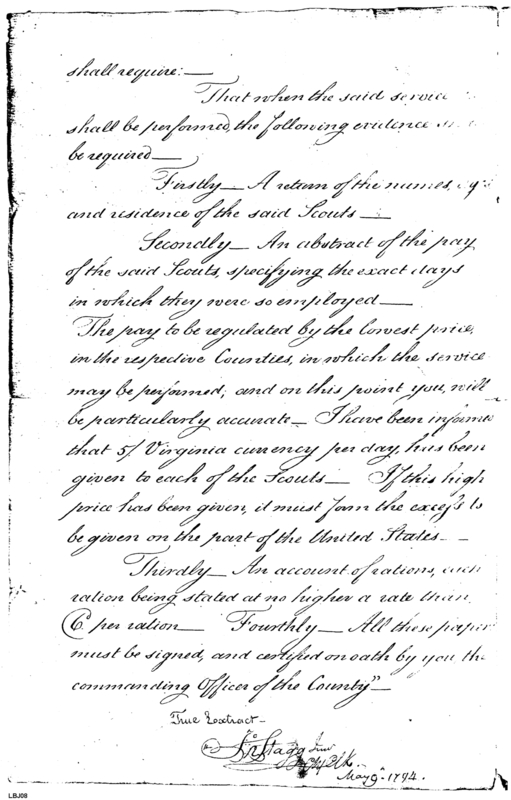 shall require:—
That when the said service
shall be performed, the following evidence
be required—
Firstly— A return of the names,
and residence of the said Scouts—
Secondly— An abstract of the pay
of the said Scouts, specifying the exact days
in which they were so employed—
The pay to be regulated by the lowest price,
in the respective Counties, in which the service
may be performed; and on this point you, will
be particularly accurate— I have been informed
that 5/ Virginia currency per day, has been
given to each of the Scouts— If this high
price has been given, it must form the excess to
be given on the part of the United States—
Thirdly— An account of rations, each
ration being stated at no higher a rate than
per ration— Fourthly— All these papers
must be signed, and certified on oath by you the
commanding Officer of the County"—
True Extract—
Stagg Jun
Clk.
May 9th 1794.
LBJ08